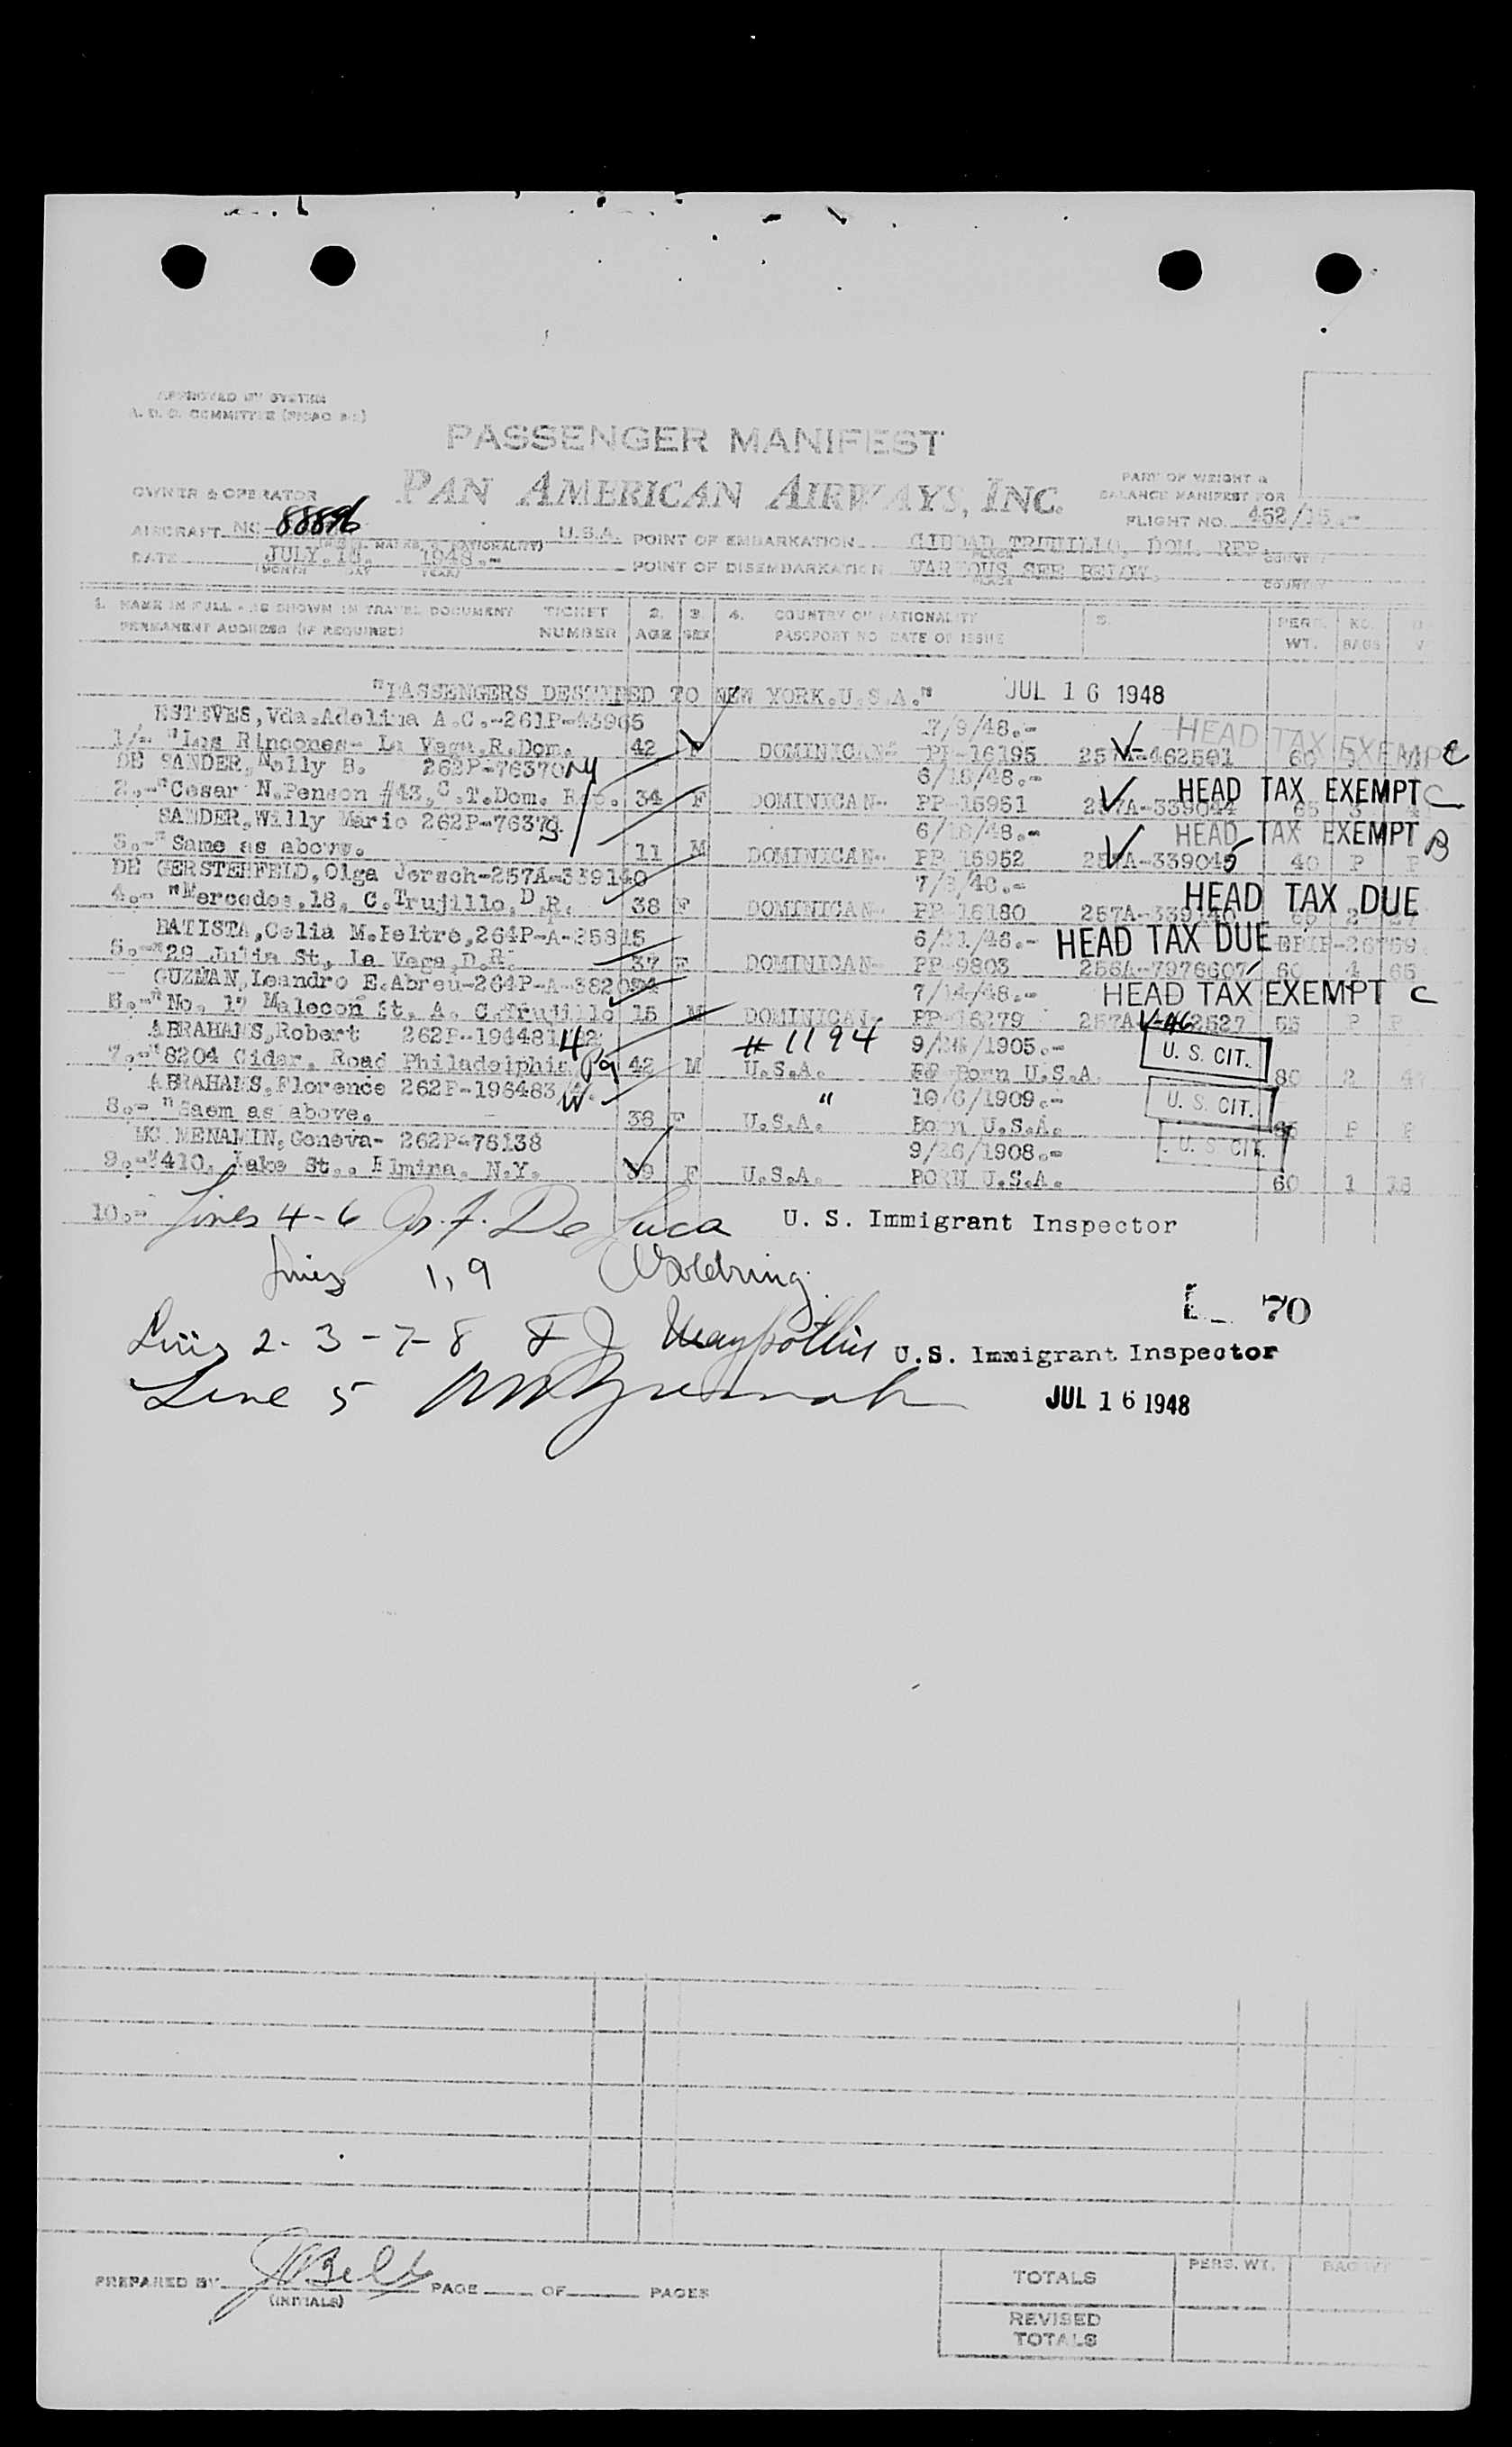 APPROVED BY SYSTEM
A. D. C. COMMITTEE
PASSENGER MANIFEST
PAN AMERICAN AIRWAYS, INC.
PART OF WEIGHT &
BALANCE MANIFEST FOR
FLIGHT NO. 452/15.-
OWNER & OPERATOR
AIRCRAFT NC-88896 U.S.A. POINT OF EMBARKATION CIUDAD TRUJILLO, DOM. REP.
DATE JULY. 1948.- POINT OF DISEMBARKATION VARIOUS SEE BELOW.
(MONTH DAY YEAR) PLACE COUNTRY
1. NAME IN FULL - AS SHOWN IN TRAVEL DOCUMENT TICKET 2. 3. 4. COUNTRY OF NATIONALITY 5. PERS. NO.
PERMANENT ADDRESS (IF REQUIRED) NUMBER AGE SEX PASSPORT NO. DATE OF ISSUE WT. BAGS
"PASSENGERS DESTINED TO NEW YORK.U.S.A." JUL 16 1948
ESTEVES, Vda.Adelina A.C.-261P-43965 7/9/48.- HEAD TAX EXEMPT C
1/- "Las Rincones- La Vega.R.Dom. 42 F DOMINICAN- PP-16195 257A-462501 60
DE SANDER, Nelly B. 262P-76370 NY 6/18/48.- HEAD TAX EXEMPT C
2.-"Cesar N.Penson #43, C.T.Dom. Rep. 34 F DOMINICAN- PP-15951 257A-339044 65 3
SANDER, Willy Mario 262P-7637 6/18/48.- HEAD TAX EXEMPT B
3.-"Same as above. 11 M DOMINICAN- PP-15952 257A-339045 40 P P
DE GERSTENFELD, Olga Jorsch-257A-339140 HEAD TAX DUE
4.- "Mercedes, 18, C.Trujillo, D.R. 38 F DOMINICAN- PP-16180 257A-339140 2
BATISTA, Celia M.Peltre, 264P-A-25815 HEAD TAX DUE
5.-"29 Julia St, La Vega, D.R. 37 F DOMINICAN- PP-9803 256A-7976607 60 4 65
GUZMAN, Leandro E.Abreu-264P-A-382 7/14/48.- HEAD TAX EXEMPT C
6.-"No. 17 Malecon St. A. C.Trujillo 15 M DOMINICAN- PP-16279 257A V-462527 55 P P
ABRAHAMS, Robert # 1194 U. S. CIT.
7.-"8204 Cidar. Road Philadelphia Pa 42 M U.S.A. Born U.S.A. 80 2
ABRAHAMS, Florence 262P-196483 " 10/6/1909.- U. S. CIT.
8.- "Saem as above. 38 F U.S.A. Born U.S.A. P P
MC MENAMIN, Geneva- 262P-76138 9/26/1908.- U. S. CIT.
9.-"410, Lake St., Elmira, N.Y. 39 F U.S.A. BORN U.S.A. 60 1 18
10.- Lines 4-6 Jos. F. De Luca U. S. Immigrant Inspector
Lines 1, 9 Goldring
L 70
Lines 2-3-7-8 U.S. Immigrant Inspector
Line 5 JUL 16 1948
PREPARED BY PAGE OF PAGES
(INITIALS)
TOTALS PERS. WT.
REVISED
TOTALS